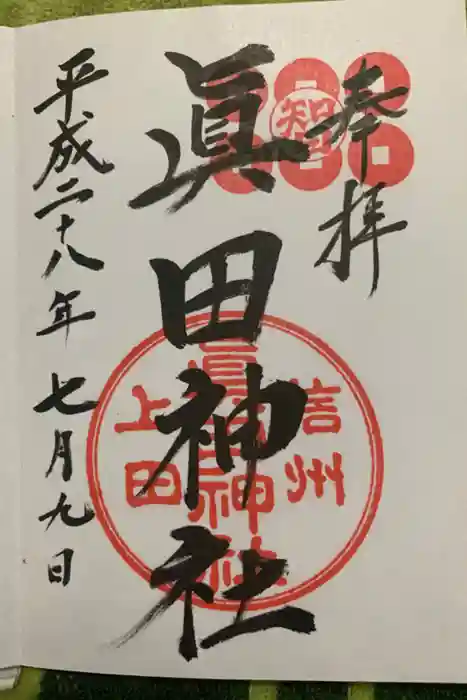 奉拝
智
眞田神社
信州
眞田神社
上田
平成二十八年七月九日